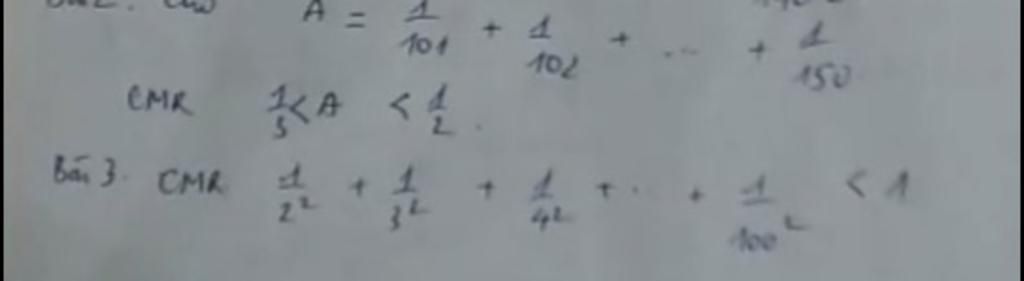 Bài 2. Cho A = 1/101 + 1/102 + ... + 1/150
CMR 1/3 < A < 1/2.
Bài 3. CMR 1/2² + 1/3² + 1/4² + ... + 1/100² < 1